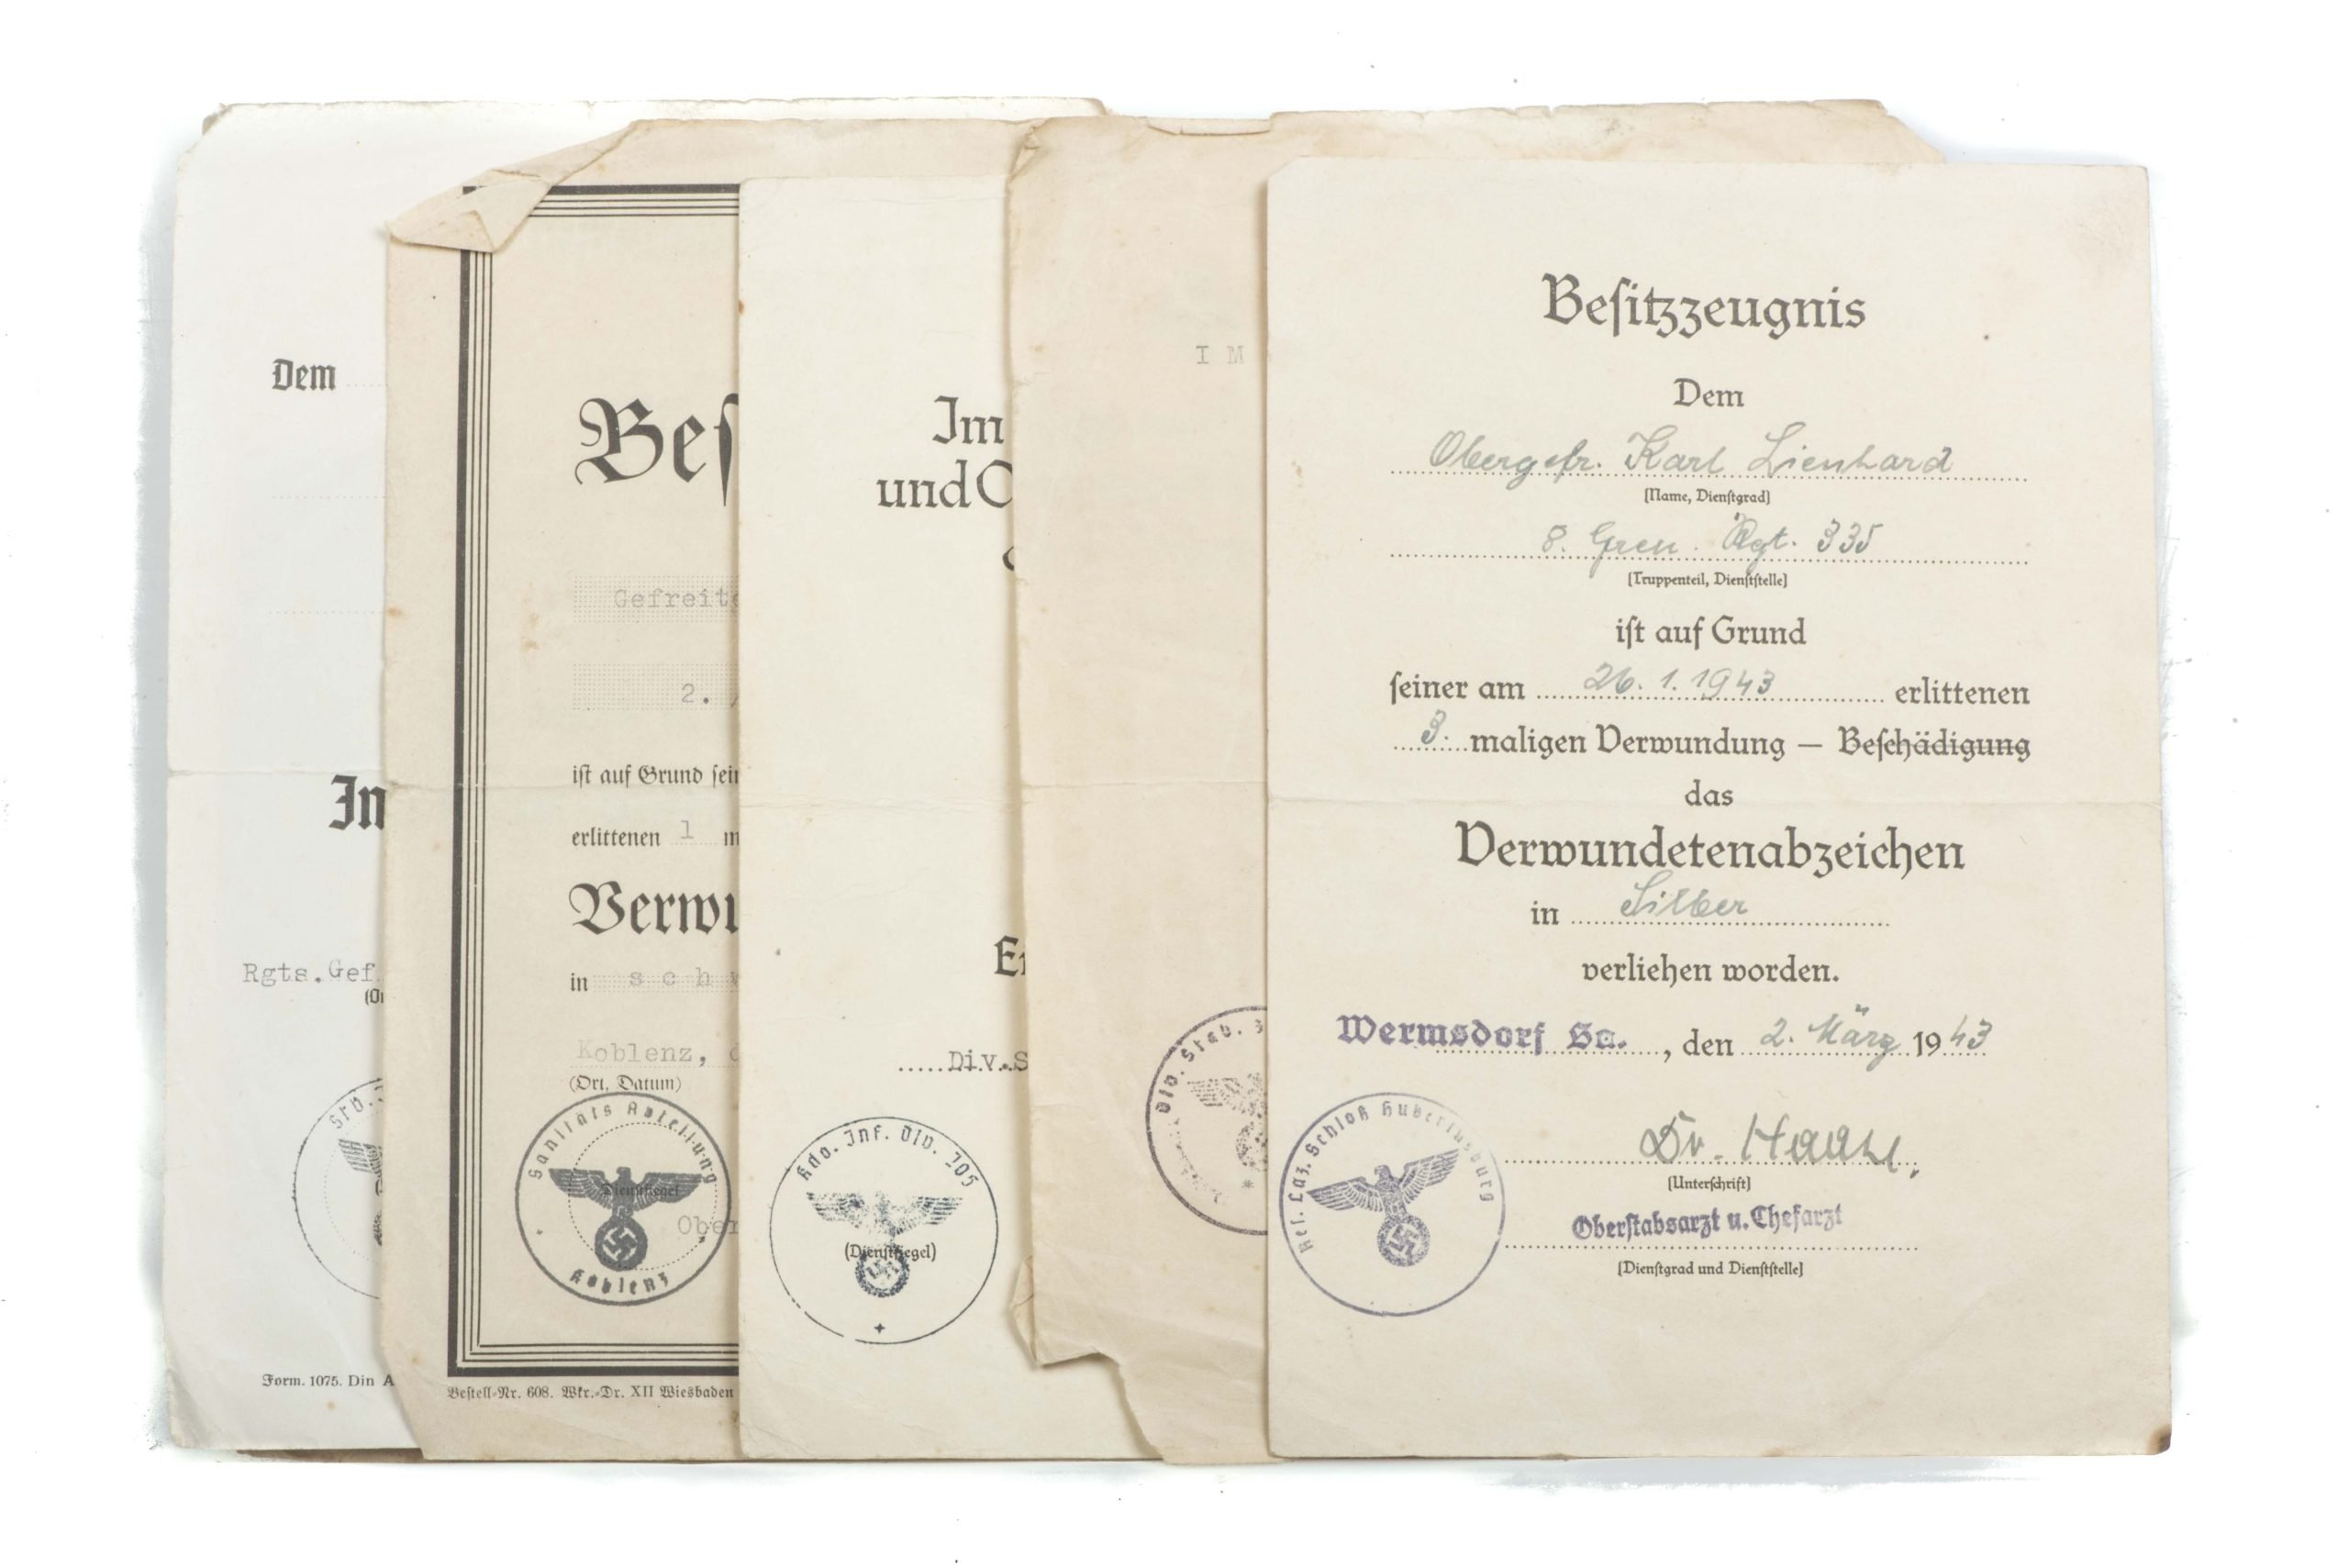 Dem
In
Rgts.Gef
(Or
Stb.
Form. 1075. Din A
Beſ
Gefreite
2. /
iſt auf Grund ſein
erlittenen 1 m
Verwu
in s c h w
Koblenz, d
(Ort, Datum)
Sanitäts Abteilung
Koblenz
Dienſtſiegel
Ober
Beſtell-Nr. 608. Wkr.-Dr. XII Wiesbaden
Im
und O
d
Er
Div.S
Kdo. Inf. Div. 205
(Dienſtſiegel)
I M
Div. Stab. 3
Beſitzzeugnis
Dem
Obergefr. Karl Lienhard
(Name, Dienſtgrad)
8. Gren. Rgt. 335
(Truppenteil, Dienſtſtelle)
iſt auf Grund
ſeiner am 26.1.1943 erlittenen
3. maligen Verwundung — Beſchädigung
das
Verwundetenabzeichen
in Silber
verliehen worden.
Wermsdorf Sa., den 2. März 1943
Reſ. Laz. Schloß Hubertusburg
Dr.
(Unterſchrift)
Oberſtabsarzt u. Chefarzt
(Dienſtgrad und Dienſtſtelle)